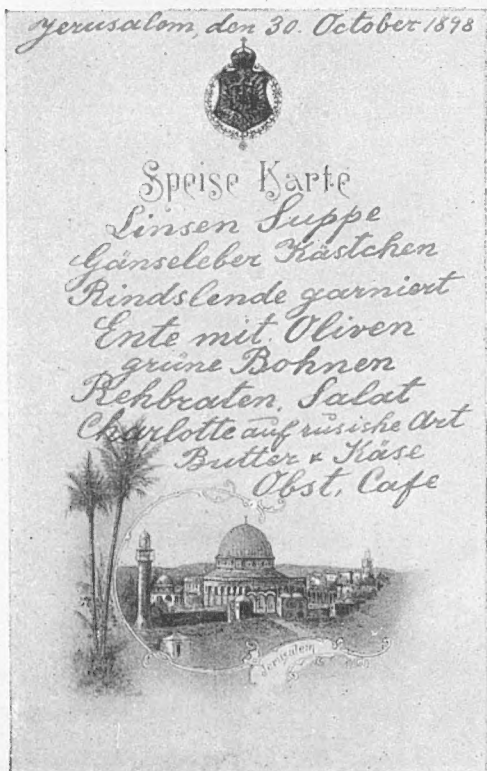 Jerusalem, den 30. October 1898
Speise Karte
Linsen Suppe
Gänseleber Kästchen
Rindslende garniert
Ente mit Oliven
grüne Bohnen
Rehbraten, Salat
Charlotte auf rusishe Art
Butter & Käse
Obst, Cafe
Jerusalem